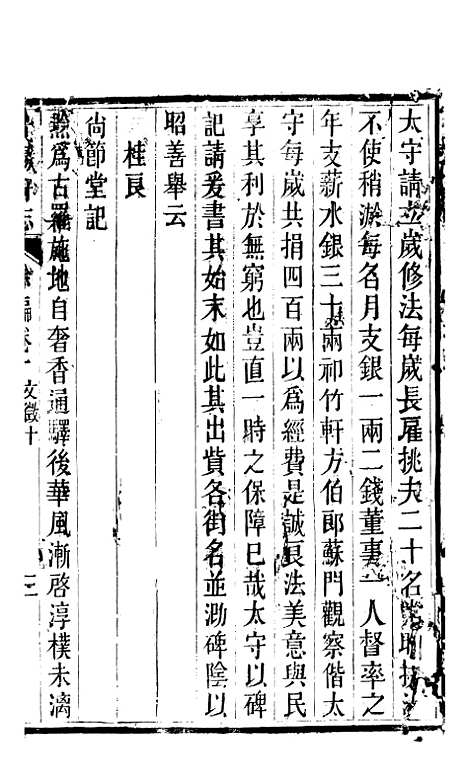 太守請立歲修法每歲長雇挑夫二十名
不使稍淤每名月支銀一兩二錢董事一人督率之
年支薪水銀三十兩祁竹軒方伯郎蘇門觀察偕太
守每歲共捐四百兩以爲經費是誠良法美意與民
享其利於無窮也豈直一時之保障已哉太守以碑
記請爰書其始末如此其出貲各街名並泐碑陰以
昭善舉云
桂良
尙節堂記
黔爲古羅施地自奢香通驛後華風漸啓淳樸未漓
府志 續編卷十文徵十